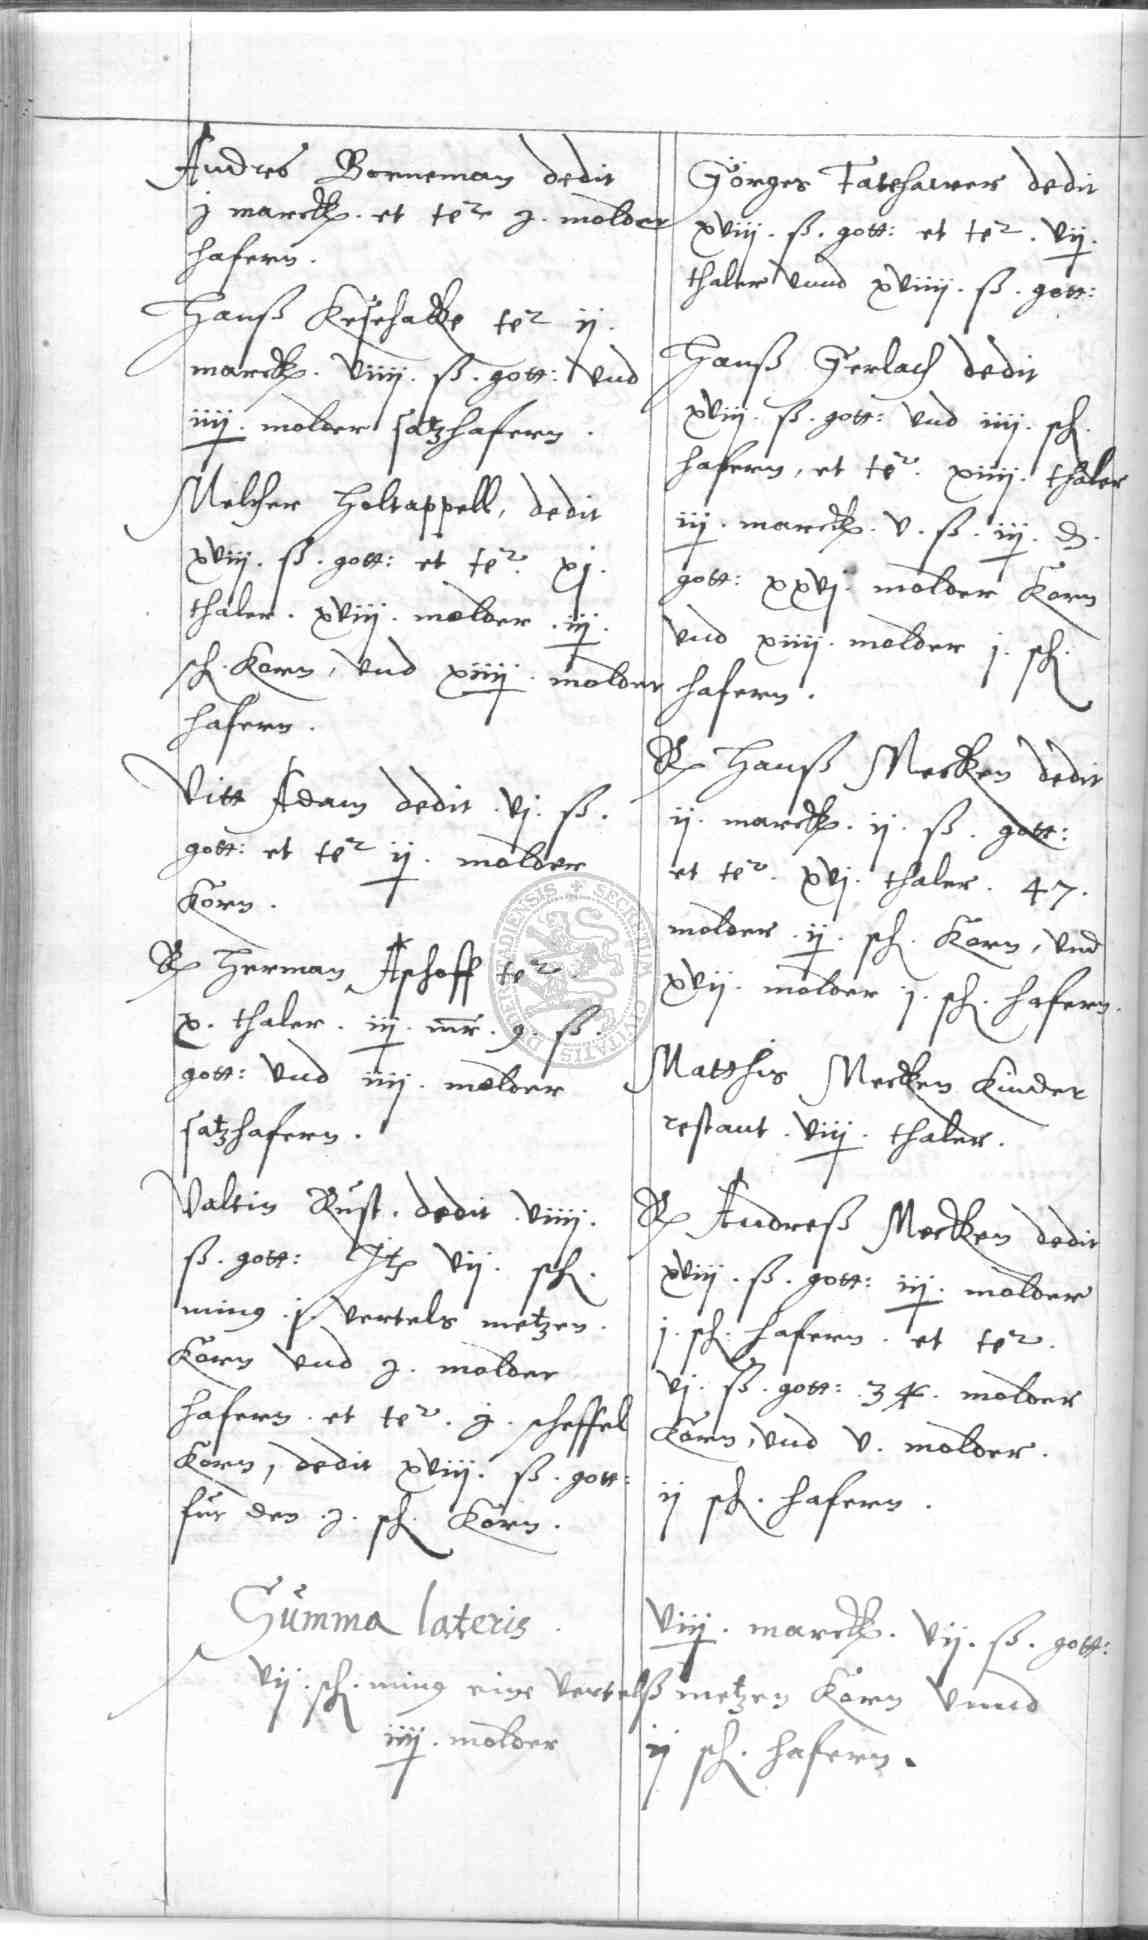 Andres Borneman dedit
j marck. et te^r j. molder
hafern.
Hanß Kesehacke te^r ij.
marck. viiij. ß. gott: vnd
iiij. molder satzhafern.
Melcher Holtappell, dedit
xviij. ß. gott: et te^r. xj.
thaler. xviij. molder. iij.
sch. Korn, vnd xiiij. molder
hafern.
Vitt Adam dedit. vj. ß.
gott: et te^r ij. molder
Korn.
R Herman Aschoff te^r.
x. thaler. iij. mr. 9. ß.
gott: vnd iiij. molder
satzhafern.
Valtin Rust. dedit. viiij.
ß. gott: It vij. sch.
ming. j vertels metzen.
Korn vnd j. molder
hafern. et te^r. j. scheffel
Korn, dedit xviij. ß. gott:
für den. j. sch. Korn.
Görges Tatehawer dedit
xviij. ß. gott: et te^r. vij.
thaler vnnd xviiij. ß. gott:
Hanß Gerlach dedit
xviij. ß. gott: vnd iiij. sch.
hafern, et te^r. xiiij. thaler
iij. marck. v. ß. iij. d.
gott: xxvj. molder Korn
vnd xiiij. molder j. sch.
hafern.
R Hanß Mecken dedit
ij. marck. ij. ß. gott:
et te^r. xvj. thaler. 47.
molder. ij. sch. Korn, vnd
xvij. molder j. sch. hafern.
Matthis Mecken Kinder
restant. viij. thaler.
R Andreß Mecken dedit
xviij. ß. gott: iij. molder
j. sch. hafern. et te^r.
vj. ß. gott: 34. molder
Korn, vnd v. molder.
ij sch. hafern.
Summa lateris. viij. marck. vij. ß. gott:
vij. sch. ming eine vertelß metzen Korn vnnd
iiij. molder ij sch. hafern.
SECRETUM CIVITATIS DUDERSTADIENSIS